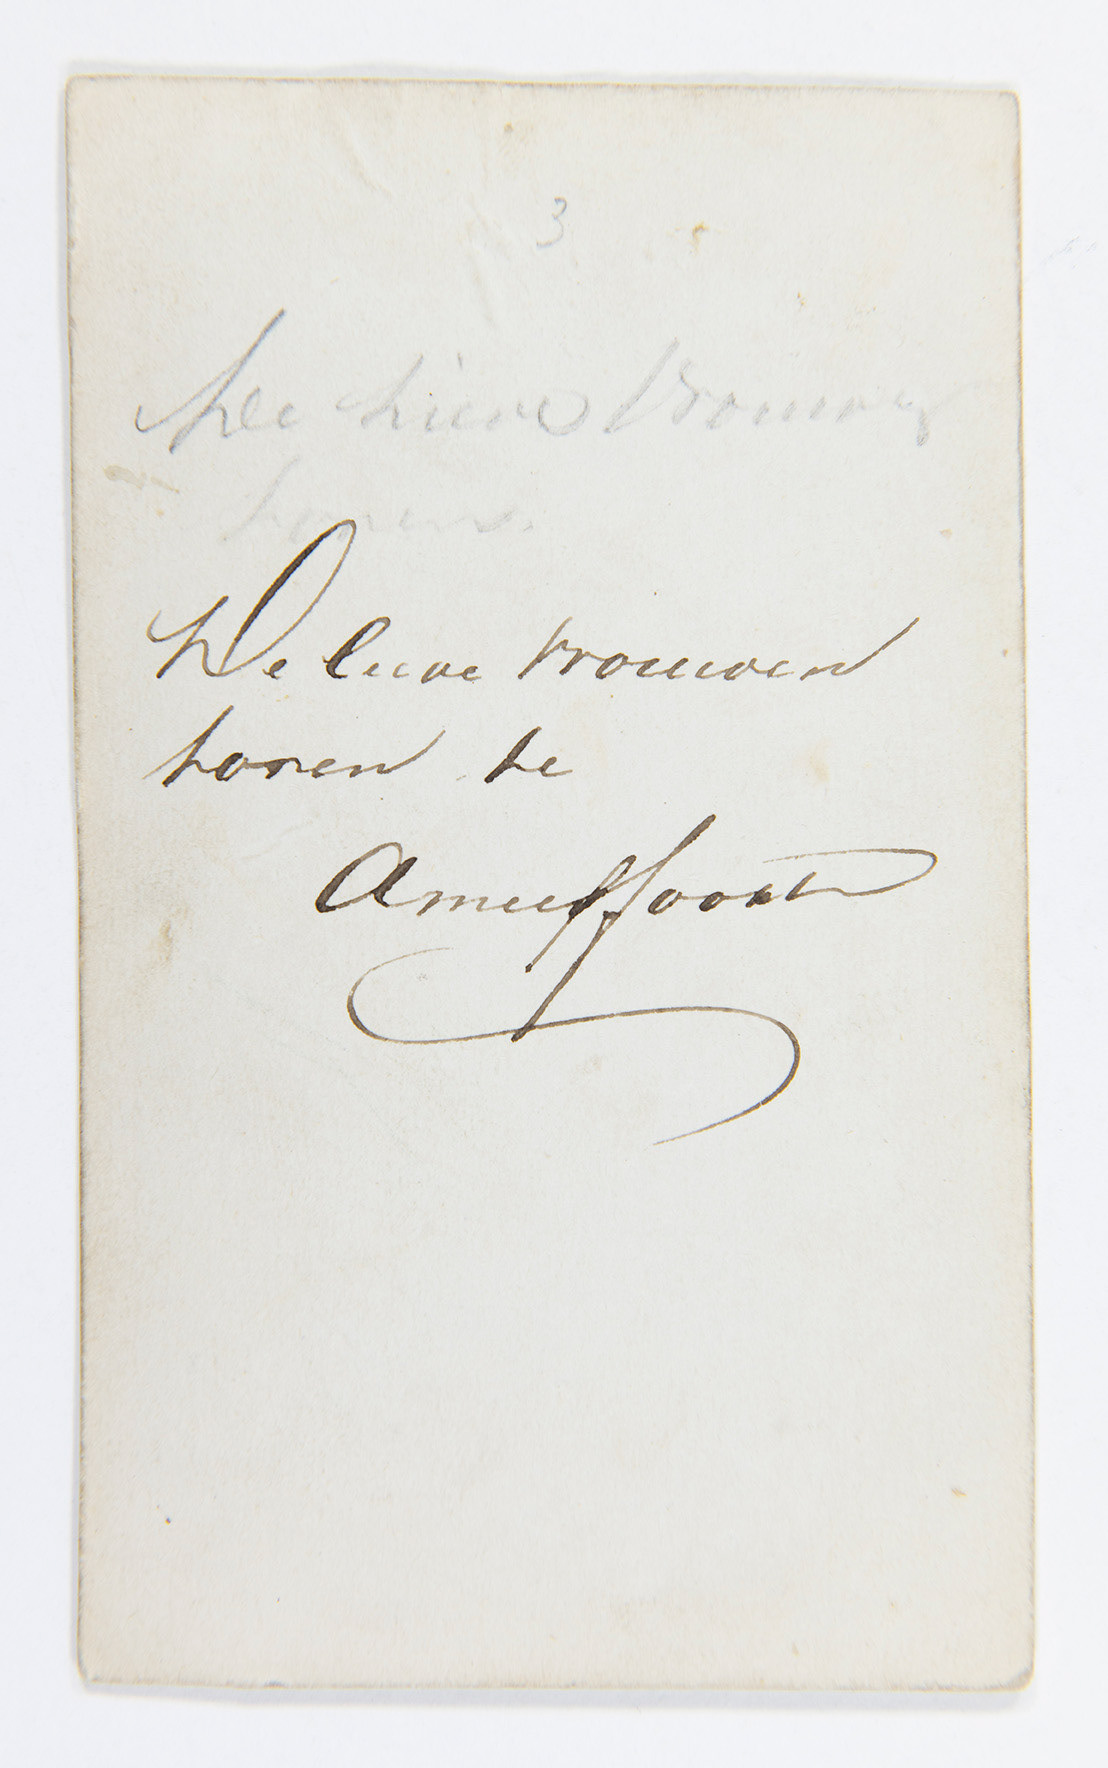 3
De Lieve Vrouwe
toren.
De lieve vrouwen
toren te
Amersfoort